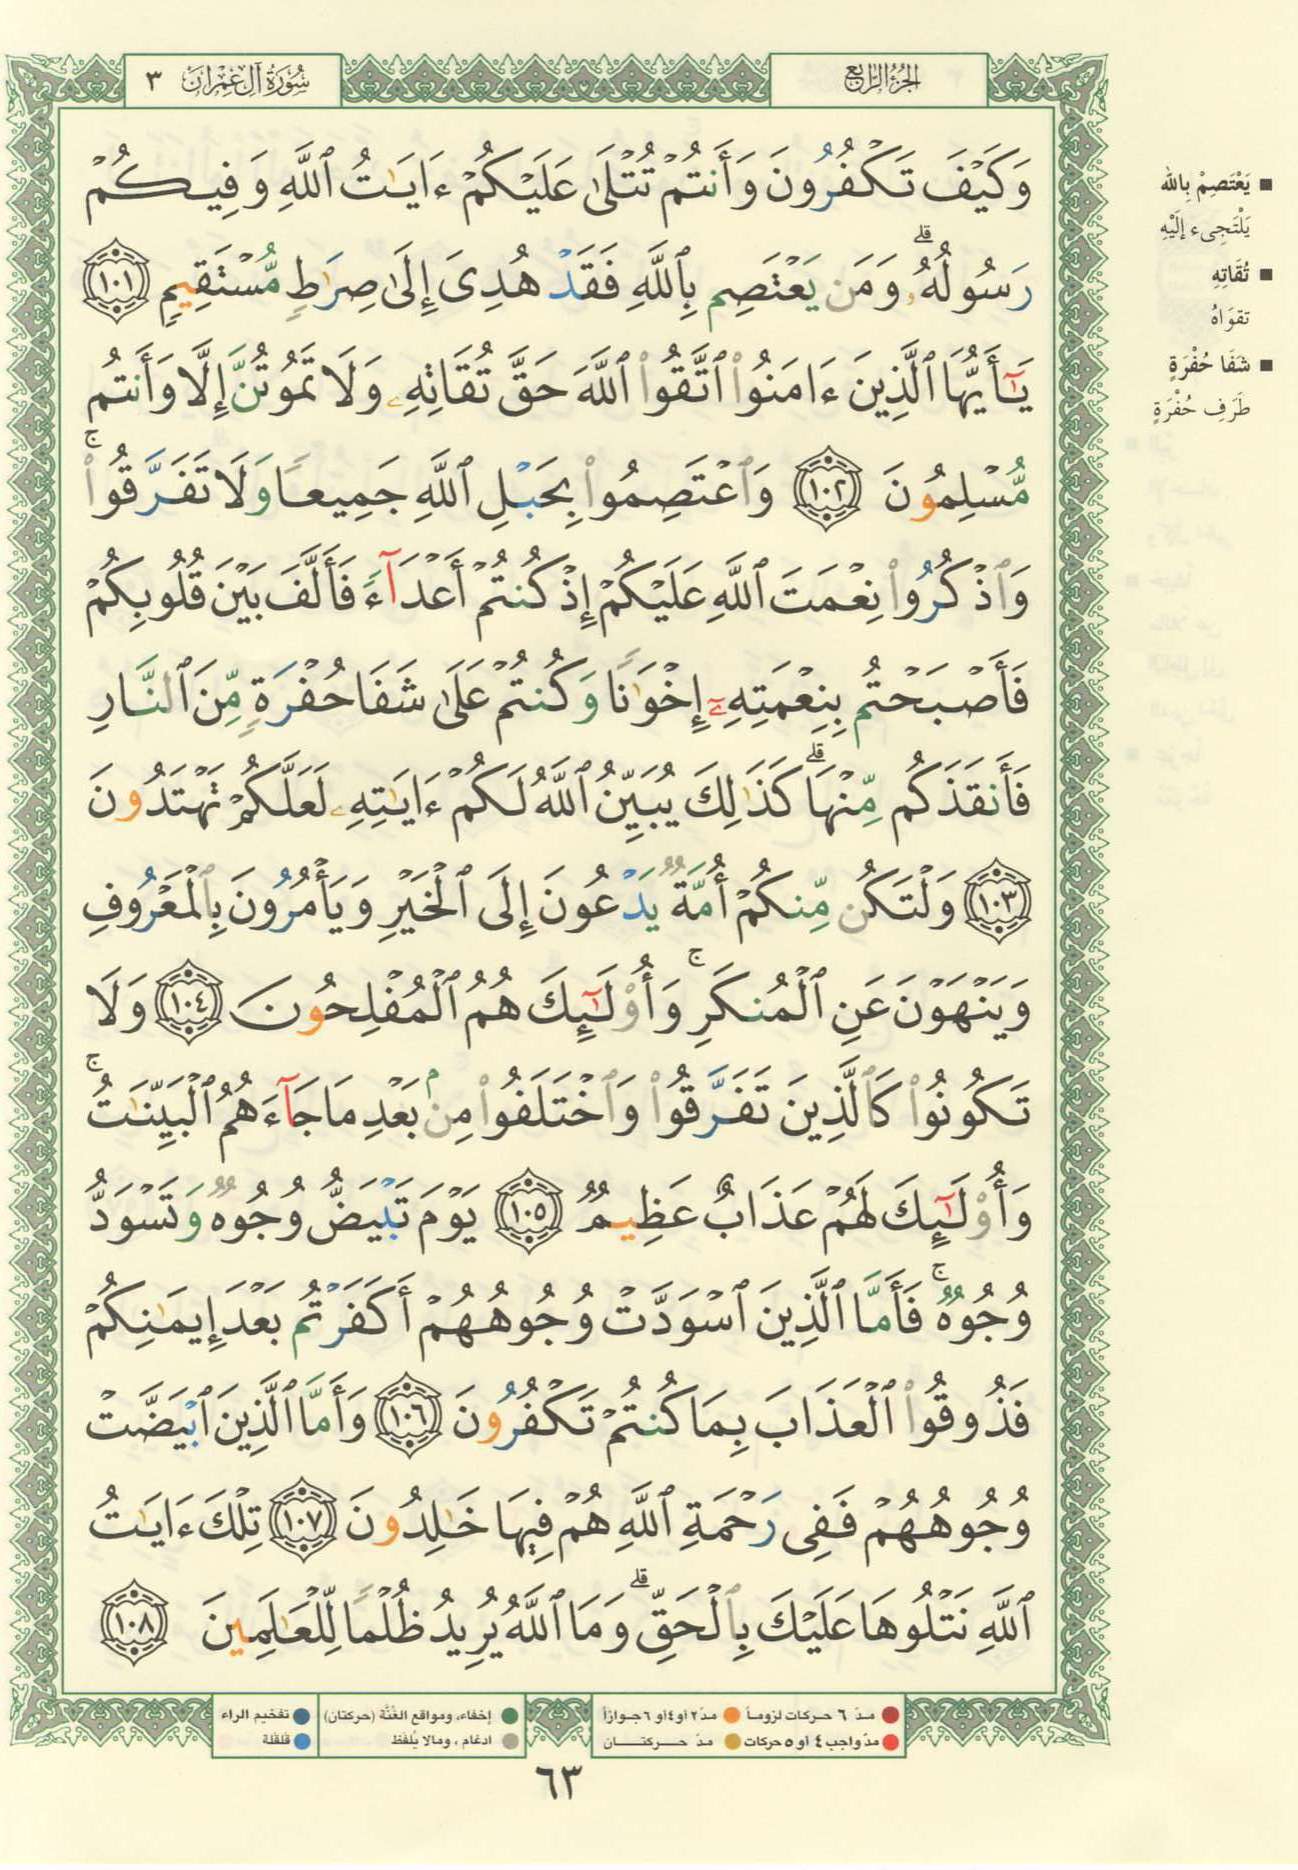 سُورَةُ آلِ عِمْرَانَ ٣
الجُزْءُ الرَّابِعُ
وَكَيْفَ تَكْفُرُونَ وَأَنتُمْ تُتْلَىٰ عَلَيْكُمْ ءَايَـٰتُ ٱللَّهِ وَفِيكُمْ
رَسُولُهُۥ ۗ وَمَن يَعْتَصِم بِٱللَّهِ فَقَدْ هُدِىَ إِلَىٰ صِرَٰطٍ مُّسْتَقِيمٍ ١٠١
يَـٰٓأَيُّهَا ٱلَّذِينَ ءَامَنُوا۟ ٱتَّقُوا۟ ٱللَّهَ حَقَّ تُقَاتِهِۦ وَلَا تَمُوتُنَّ إِلَّا وَأَنتُم
مُّسْلِمُونَ ١٠٢ وَٱعْتَصِمُوا۟ بِحَبْلِ ٱللَّهِ جَمِيعًا وَلَا تَفَرَّقُوا۟ ۚ
وَٱذْكُرُوا۟ نِعْمَتَ ٱللَّهِ عَلَيْكُمْ إِذْ كُنتُمْ أَعْدَآءً فَأَلَّفَ بَيْنَ قُلُوبِكُمْ
فَأَصْبَحْتُم بِنِعْمَتِهِۦٓ إِخْوَٰنًا وَكُنتُمْ عَلَىٰ شَفَا حُفْرَةٍ مِّنَ ٱلنَّارِ
فَأَنقَذَكُم مِّنْهَا ۗ كَذَٰلِكَ يُبَيِّنُ ٱللَّهُ لَكُمْ ءَايَـٰتِهِۦ لَعَلَّكُمْ تَهْتَدُونَ
١٠٣ وَلْتَكُن مِّنكُمْ أُمَّةٌ يَدْعُونَ إِلَى ٱلْخَيْرِ وَيَأْمُرُونَ بِٱلْمَعْرُوفِ
وَيَنْهَوْنَ عَنِ ٱلْمُنكَرِ ۚ وَأُو۟لَـٰٓئِكَ هُمُ ٱلْمُفْلِحُونَ ١٠٤ وَلَا
تَكُونُوا۟ كَٱلَّذِينَ تَفَرَّقُوا۟ وَٱخْتَلَفُوا۟ مِنۢ بَعْدِ مَا جَآءَهُمُ ٱلْبَيِّنَـٰتُ ۚ
وَأُو۟لَـٰٓئِكَ لَهُمْ عَذَابٌ عَظِيمٌ ١٠٥ يَوْمَ تَبْيَضُّ وُجُوهٌ وَتَسْوَدُّ
وُجُوهٌ ۚ فَأَمَّا ٱلَّذِينَ ٱسْوَدَّتْ وُجُوهُهُمْ أَكَفَرْتُم بَعْدَ إِيمَـٰنِكُمْ
فَذُوقُوا۟ ٱلْعَذَابَ بِمَا كُنتُمْ تَكْفُرُونَ ١٠٦ وَأَمَّا ٱلَّذِينَ ٱبْيَضَّتْ
وُجُوهُهُمْ فَفِى رَحْمَةِ ٱللَّهِ هُمْ فِيهَا خَـٰلِدُونَ ١٠٧ تِلْكَ ءَايَـٰتُ
ٱللَّهِ نَتْلُوهَا عَلَيْكَ بِٱلْحَقِّ ۗ وَمَا ٱللَّهُ يُرِيدُ ظُلْمًا لِّلْعَـٰلَمِينَ ١٠٨
■ يَعْتَصِمْ بِالله
يَلْتَجِىء إِلَيْهِ
■ تُقَاتِهِ
تقوَاهُ
■ شَفَا حُفْرَةٍ
طَرَفِ حُفْرَةٍ
مدّ ٦ حركات لزوماً
مدّ ٢ أو ٤ أو ٦ جوازاً
مدّ واجب ٤ أو ٥ حركات
مدّ حركتان
إخفاء، ومواقع الغُنَّة (حركتان)
ادغام ، ومالا يُلفَظ
تفخيم الراء
قلقلة
٦٣